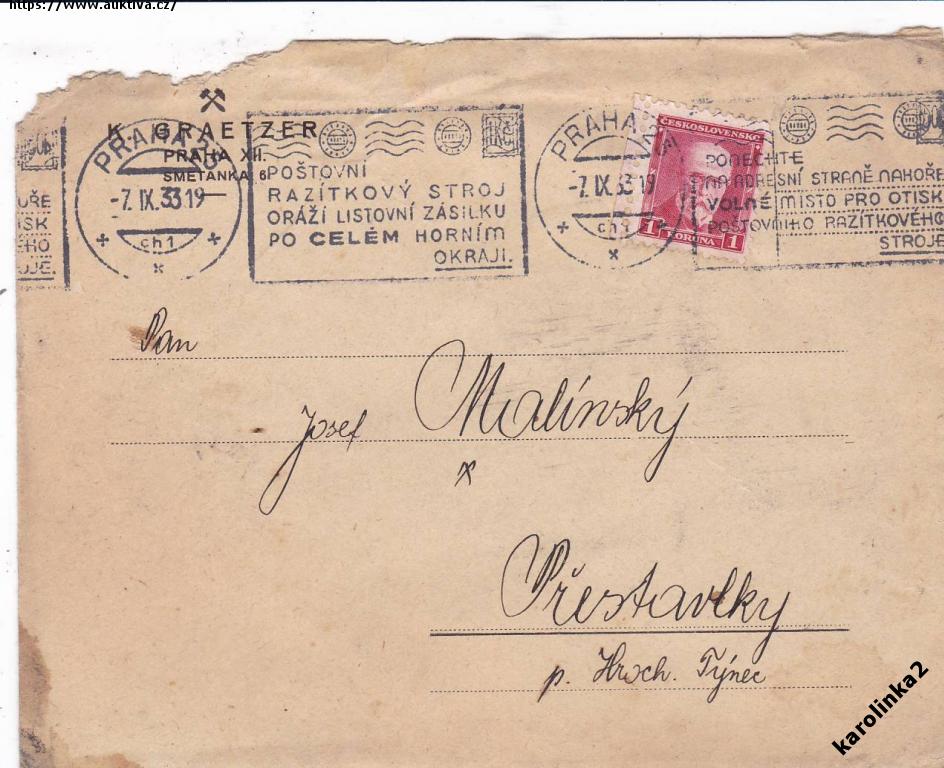 https://www.auktiva.cz/
K. GRAETZER
PRAHA XII.
SMETANKA 6
PRAHA 25
-7.IX.33 19
ch1
POŠTOVNÍ
RAZÍTKOVÝ STROJ
ORÁŽÍ LISTOVNÍ ZÁSILKU
PO CELÉM HORNÍM
OKRAJI.
PRAHA 25
-7.IX.33 19
ch1
ČESKOSLOVENSKO
1 KORUNA 1
PONECHTE
NA ADRESNÍ STRANĚ NAHOŘE
VOLNÉ MÍSTO PRO OTISK
POŠTOVNÍHO RAZÍTKOVÉHO
STROJE
Pan
Josef Malínský
Přestavlky
p. Hroch. Týnec
karolinka2